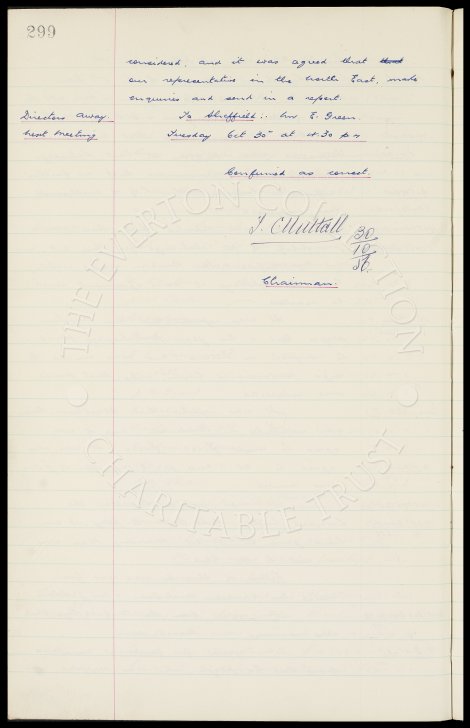 299
considered, and it was agreed that that
our representative in the North East, make
enquiries and send in a report.
Directors away. To Sheffield:- Mr E. Green.
Next Meeting Tuesday Oct 30th at 4.30 p.m
Confirmed as correct.
T. C Nuttall 30/10/56.
Chairman.
THE EVERTON COLLECTION
CHARITABLE TRUST